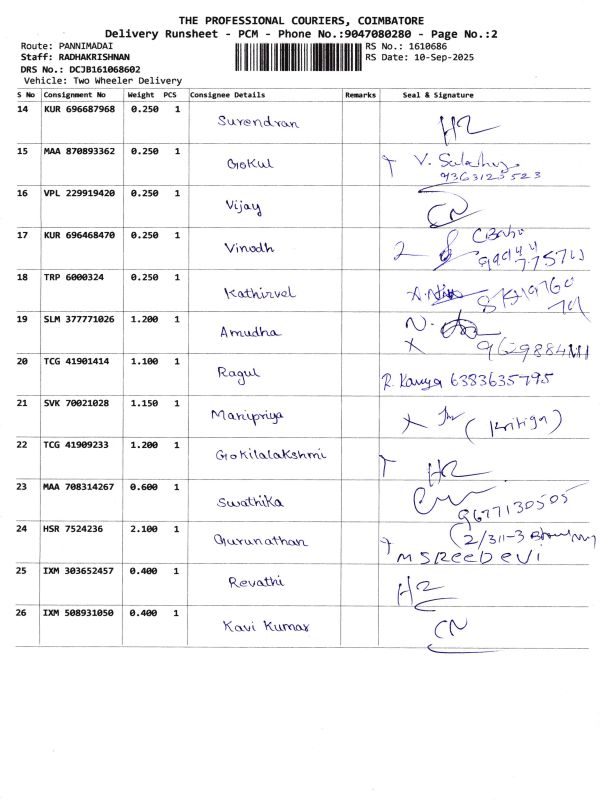 THE PROFESSIONAL COURIERS, COIMBATORE
Delivery Runsheet - PCM - Phone No.:9047080280 - Page No.:2
Route: PANNIMADAI
RS No.: 1610686
Staff: RADHAKRISHNAN
RS Date: 10-Sep-2025
DRS No.: DCJB161068602
Vehicle: Two Wheeler Delivery
S No Consignment No Weight PCS Consignee Details Remarks Seal & Signature
14 KUR 696687968 0.250 1 Surendran H2
15 MAA 870893362 0.250 1 Gokul V.
9363125523
16 VPL 229919420 0.250 1 Vijay CN
17 KUR 696468470 0.250 1 Vinodh
18 TRP 6000324 0.250 1 Kathirvel
19 SLM 377771026 1.200 1 Amudha N.
20 TCG 41901414 1.100 1 Ragul R. Kanya 6383635795
21 SVK 70021028 1.150 1 Manipriya
22 TCG 41909233 1.200 1 Gokilalakshmi H2
23 MAA 708314267 0.600 1 Swathika
9677130505
24 HSR 7524236 2.100 1 Gurunathan 2/311-3
M SREEDEVI
25 IXM 303652457 0.400 1 Revathi H2
26 IXM 508931050 0.400 1 Kavi Kumar CN